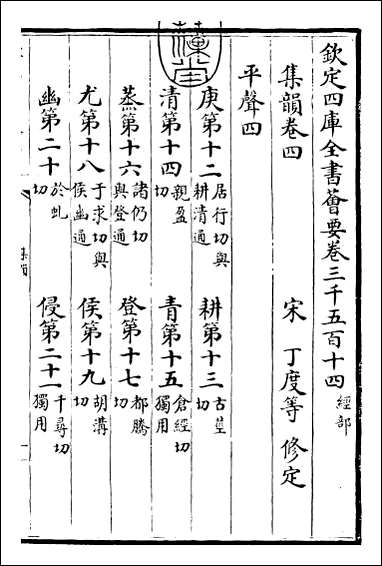 欽定四庫全書薈要卷三千五百十四 經部
集韻卷四
宋 丁度等 修定
平聲四
庚第十二 居行切與耕清通
耕第十三 古莖切
清第十四 親盈切
青第十五 倉經切獨用
蒸第十六 諸仍切與登通
登第十七 都騰切
尤第十八 于求切與侯幽通
侯第十九 胡溝切
幽第二十 於虬切
侵第二十一 千尋切獨用